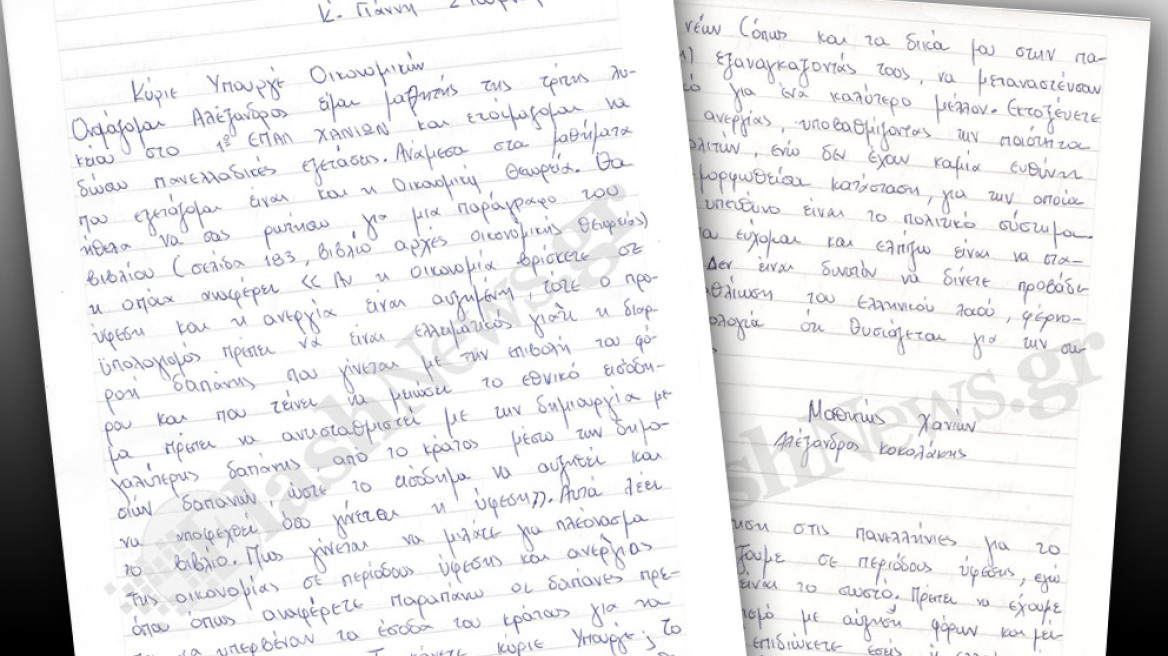 Κ. Γιάννη
Κύριε Υπουργέ Οικονομικών
Ονομάζομαι Αλέξανδρος είμαι μαθητής της τρίτης λυ-
κείου στο 1ο ΕΠΑΛ ΧΑΝΙΩΝ και ετοιμάζομαι να
δώσω πανελλαδικές εξετάσεις. Ανάμεσα στα μαθήματα
που εξετάζομαι είναι και η Οικονομική θεωρεία. Θα
ήθελα να σας ρωτήσω για μια παράγραφο του
βιβλίου (σελίδα 183, βιβλίο αρχές οικονομικής θεωρείας)
η οποία αναφέρει << Αν η οικονομία βρίσκετε σε
ύφεση και η ανεργία είναι αυξημένη, τότε ο προ-
ϋπολογισμός πρέπει να είναι ελλειματικός γιατί η διαρ-
ροή δαπάνης που γίνεται με την επιβολή του φό-
ρου και που τείνει να μειώσει το εθνικό εισόδη-
μα πρέπει να αντισταθμιστεί με την δημιουργία με
γαλύτερης δαπάνης από το κράτος μέσω των δημο-
σίων δαπανών, ώστε το εισόδημα να αυξηθεί και
να υποφεχθεί όσο γίνεται η ύφεση>>. Αυτά λέει
το βιβλίο. Πως γίνεται να μιλάτε για πλεόνασμα
της οικονομίας σε περίοδους ύφεσης και ανεργίας
όπου όπως αναφέρετε παραπάνω οι δαπάνες πρέ-
να υπερβέναν τα έσοδα του κράτους για να
κύριε Υπουργέ; το
νέων (όπως και τα δικά μου στην πα-
εξαναγκάζοντάς τους, να μεταναστεύσουν
για ένα καλύτερο μέλλον. Εκτοξεύετε
ανεργίας, υποβαθμίζοντας την ποιότητα
πολιτών, ενώ δεν έχουν καμία ευθύνη
μορφωθείσα κατάσταση, για την οποία
υπεύθυνο είναι το πολιτικό σύστημα.
εύχομαι και ελπίζω είναι να στα-
Δεν είναι δυνατόν να δίνετε προβάδι-
θλίωση του ελληνικού λαού, φέρνο-
ολογία ότι θυσιάζεται για την σω-
Μαθητής Χανίων
Αλέξανδρος Κοκολάκης
στις πανελλήνιες για το
ζουμε σε περίοδους ύφεσης, εγώ
είναι το σωστό. Πρέπει να έχουμε
σμό με αύξηση φόρων και μεί-
επιδιώκετε εσείς
flashNews.gr
flashNews.gr